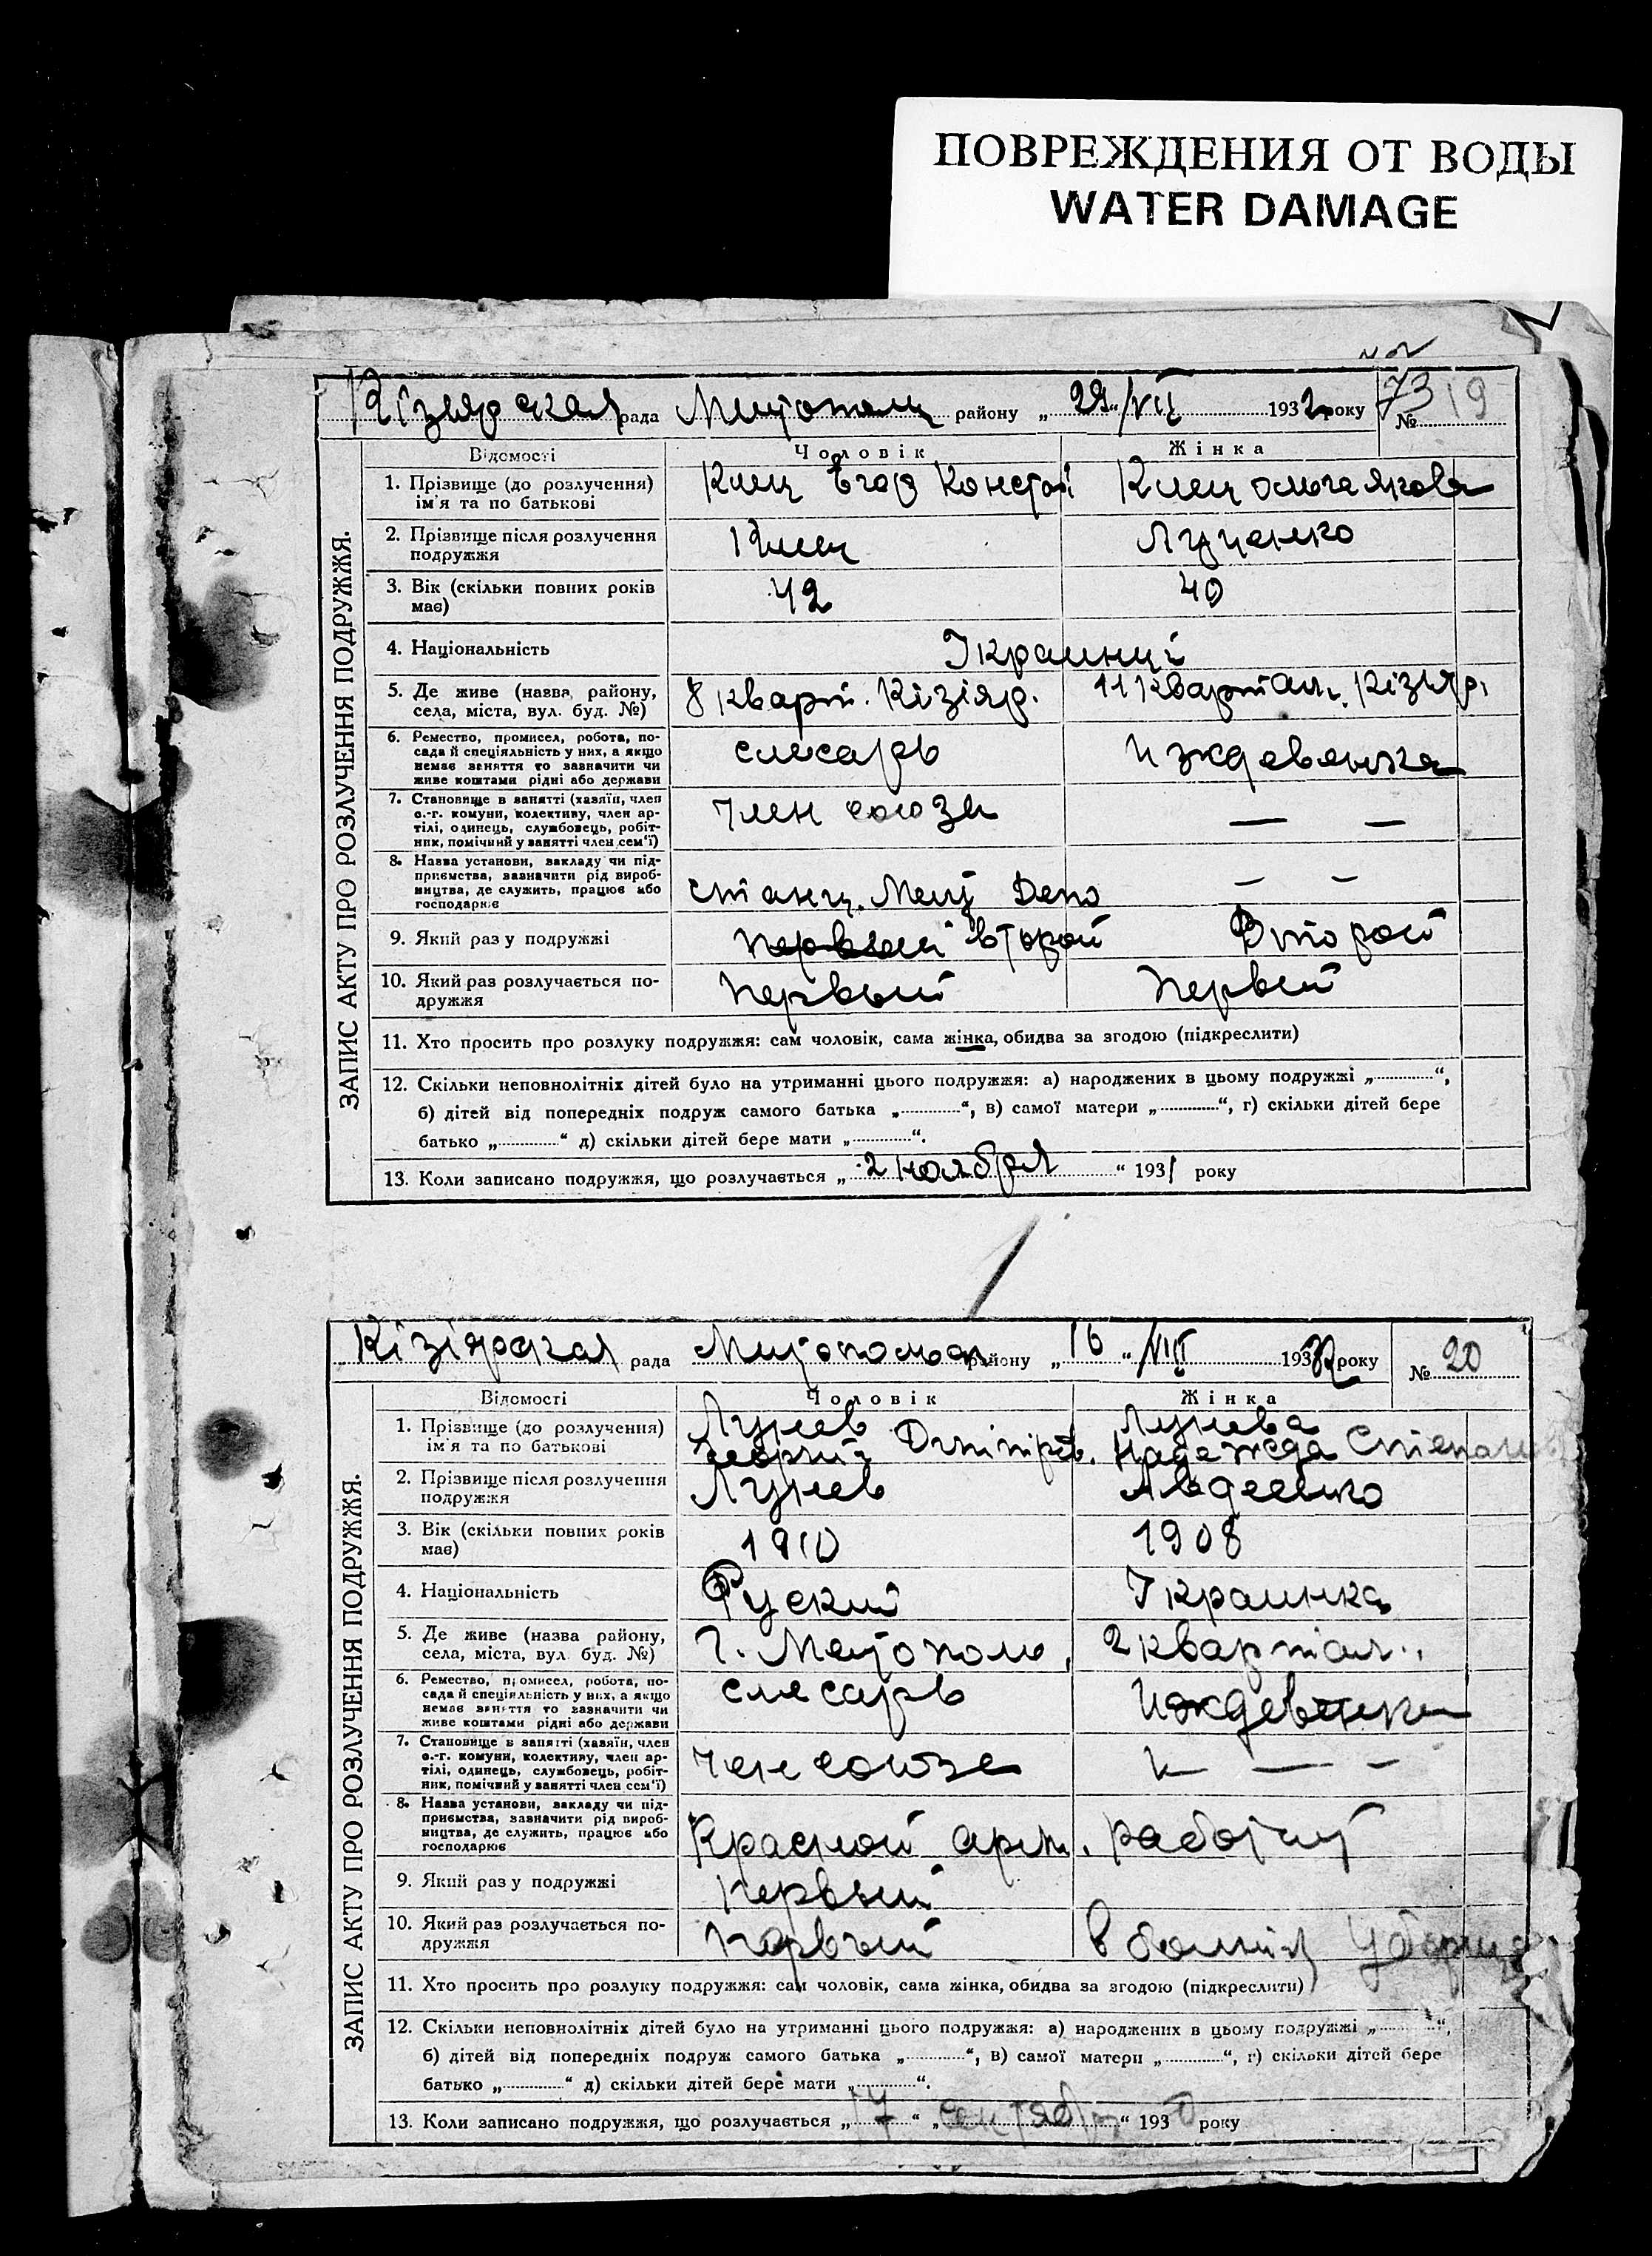 ПОВРЕЖДЕНИЯ ОТ ВОДЫ
WATER DAMAGE
ЗАПИС АКТУ ПРО РОЗЛУЧЕННЯ ПОДРУЖЖЯ.
Кізіярская рада Мицопольц району „29“ VII 1932 року № 73 19
Відомості Чоловік Жінка
1. Прізвище (до розлучення) ім'я та по батькові Клец Егор Констан Клец Ольга Яковл
2. Прізвище після розлучення подружжя Клец Луценко
3. Вік (скільки повних років має) 42 40
4. Національність Украинці
5. Де живе (назва району, села, міста, вул. буд. №) 8 кварт. Кізіяр. 11 квартал. Кізіяр.
6. Ремество, промисел, робота, посада й спеціяльність у них, а якщо немає заняття то зазначити чи живе коштами рідні або держави слесарь Иждевенка
7. Становище в занятті (хазяїн, член с.-г. комуни, колективу, член артілі, одинець, службовець, робітник, помічний у занятті член сем'ї) член союза — —
8. Назва установи, закладу чи підприємства, зазначити рід виробництва, де служить, працює або господарює Станц. Мец Депо — —
9. Який раз у подружжі первый второй Второй
10. Який раз розлучається подружжя Первый Первый
11. Хто просить про розлуку подружжя: сам чоловік, сама жінка, обидва за згодою (підкреслити)
12. Скільки неповнолітніх дітей було на утриманні цього подружжя: а) народжених в цьому подружжі „......“,
б) дітей від попередніх подруж самого батька „......“, в) самої матери „......“, г) скільки дітей бере
батько „......“ д) скільки дітей бере мати „......“.
13. Коли записано подружжя, що розлучається „2 ноября“ 1931 року
ЗАПИС АКТУ ПРО РОЗЛУЧЕННЯ ПОДРУЖЖЯ.
Кізіярская рада району „16“ VIII 1932 року № 20
Відомості Чоловік Жінка
1. Прізвище (до розлучення) ім'я та по батькові Лунев Георгий Дмитрів. Лунева Надежда Степанов
2. Прізвище після розлучення подружжя Лунев Авдеенко
3. Вік (скільки повних років має) 1910 1908
4. Національність Руский Украинка
5. Де живе (назва району, села, міста, вул. буд. №) г. Мецополь, 2 квартал.
6. Ремество, промисел, робота, посада й спеціяльність у них, а якщо немає заняття то зазначити чи живе коштами рідні або держави слесарь Иждевенка
7. Становище в занятті (хазяїн, член с.-г. комуни, колективу, член артілі, одинець, службовець, робітник, помічний у занятті член сем'ї) член союза — —
8. Назва установи, закладу чи підприємства, зазначити рід виробництва, де служить, працює або господарює Красной арм. рабочий
9. Який раз у подружжі Первый
10. Який раз розлучається подружжя Первый в больниц Уборщиц
11. Хто просить про розлуку подружжя: сам чоловік, сама жінка, обидва за згодою (підкреслити)
12. Скільки неповнолітніх дітей було на утриманні цього подружжя: а) народжених в цьому подружжі „......“,
б) дітей від попередніх подруж самого батька „......“, в) самої матери „......“, г) скільки дітей бере
батько „......“ д) скільки дітей бере мати „......“.
13. Коли записано подружжя, що розлучається „17“ „сентября“ 1930 року